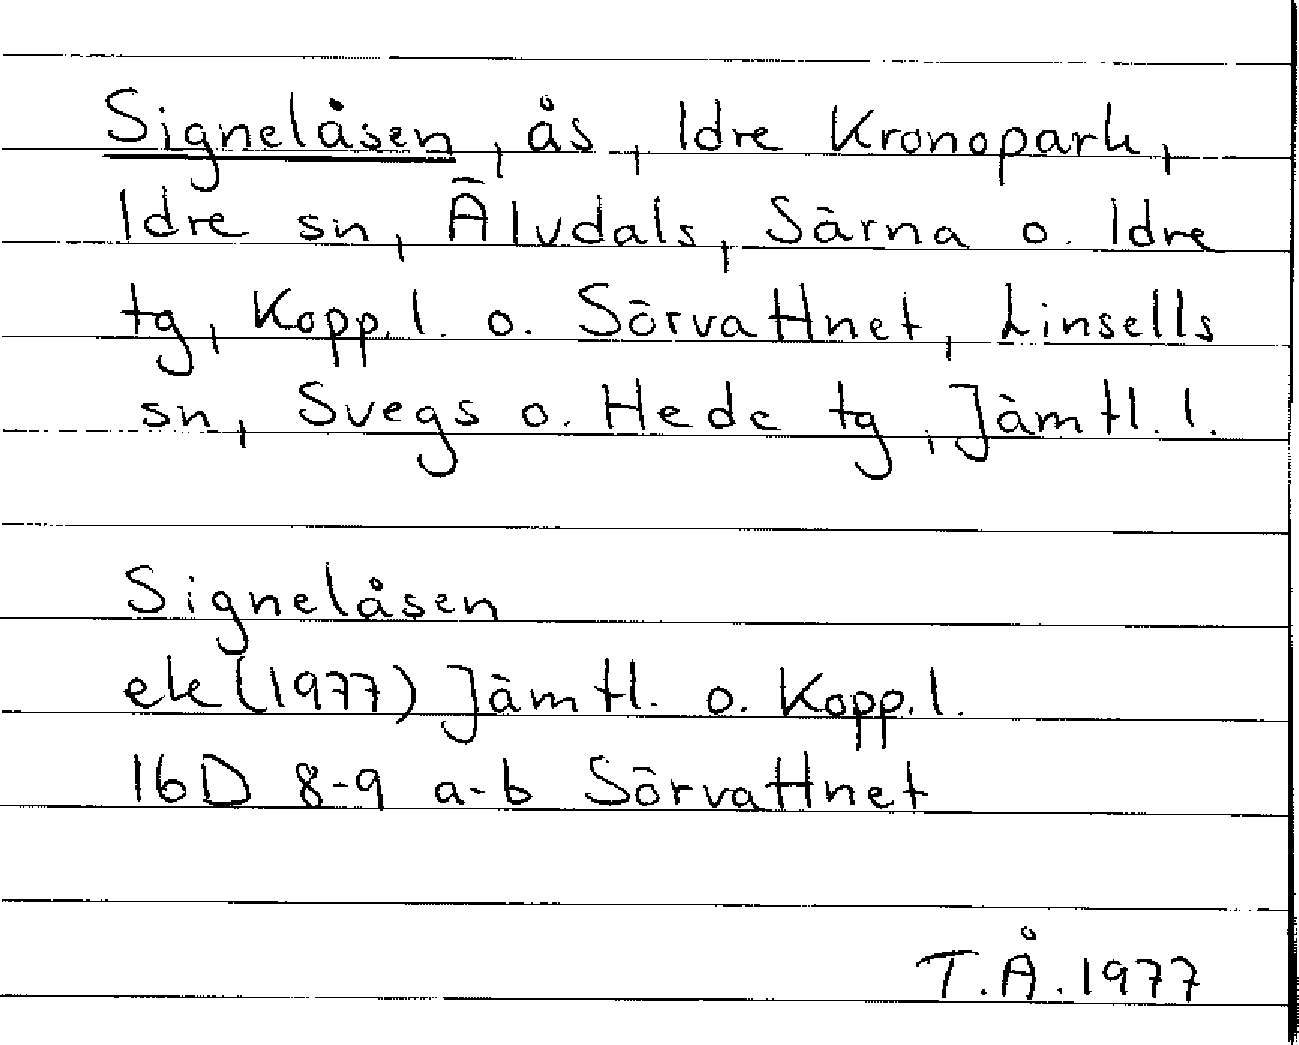 Signelåsen, ås, Idre Kronopark,
Idre sn, Älvdals, Särna o. Idre
tg, Kopp.l. o. Sörvattnet, Linsells
sn, Svegs o. Hede tg, Jämtl.l.
Signelåsen
ek(1977) Jämtl. o. Kopp.l.
16D 8-9 a-b Sörvattnet
T.Å.1977